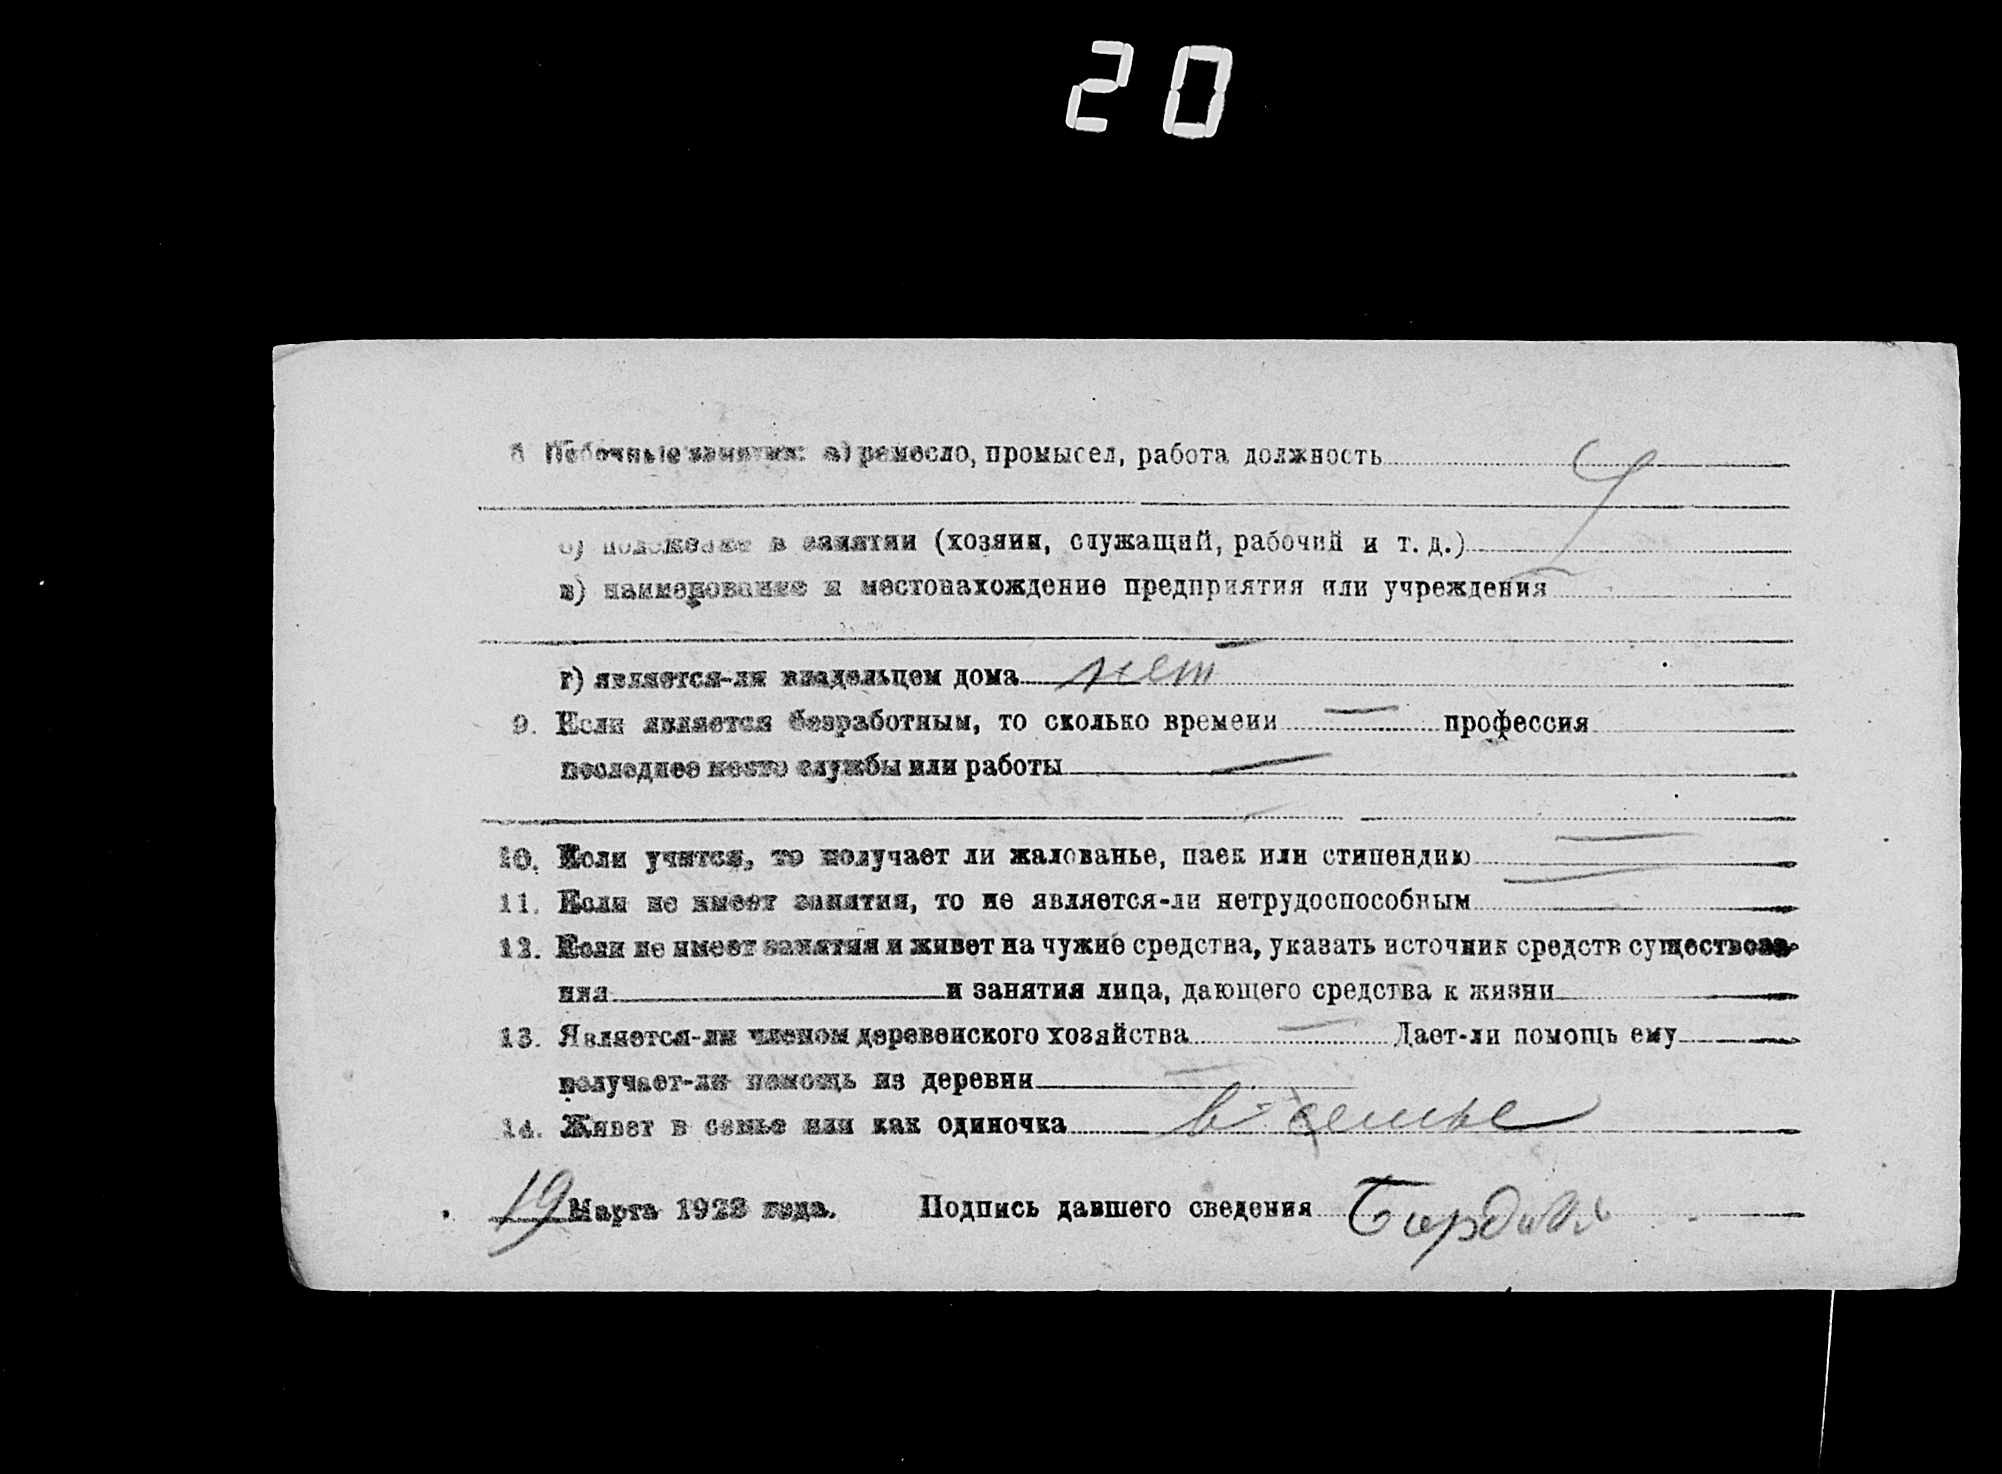 20
8 Побочные занятия: а) ремесло, промысел, работа должность
б) положение в занятии (хозяин, служащий, рабочий и т. д.)
в) наименование и местонахождение предприятия или учреждения
г) является-ли владельцем дома нет
9. Если является безработным, то сколько времени — профессия
последнее место службы или работы —
10. Если учится, то получает ли жалованье, паек или стипендию —
11. Если не имеет занятия, то не является-ли нетрудоспособным —
12. Если не имеет занятия и живет на чужие средства, указать источник средств существова-
ния и занятия лица, дающего средства к жизни
13. Является-ли членом деревенского хозяйства — Дает-ли помощь ему
получает-ли помощь из деревни —
14. Живет в семье или как одиночка в семье
19 Марта 1923 года. Подпись давшего сведения